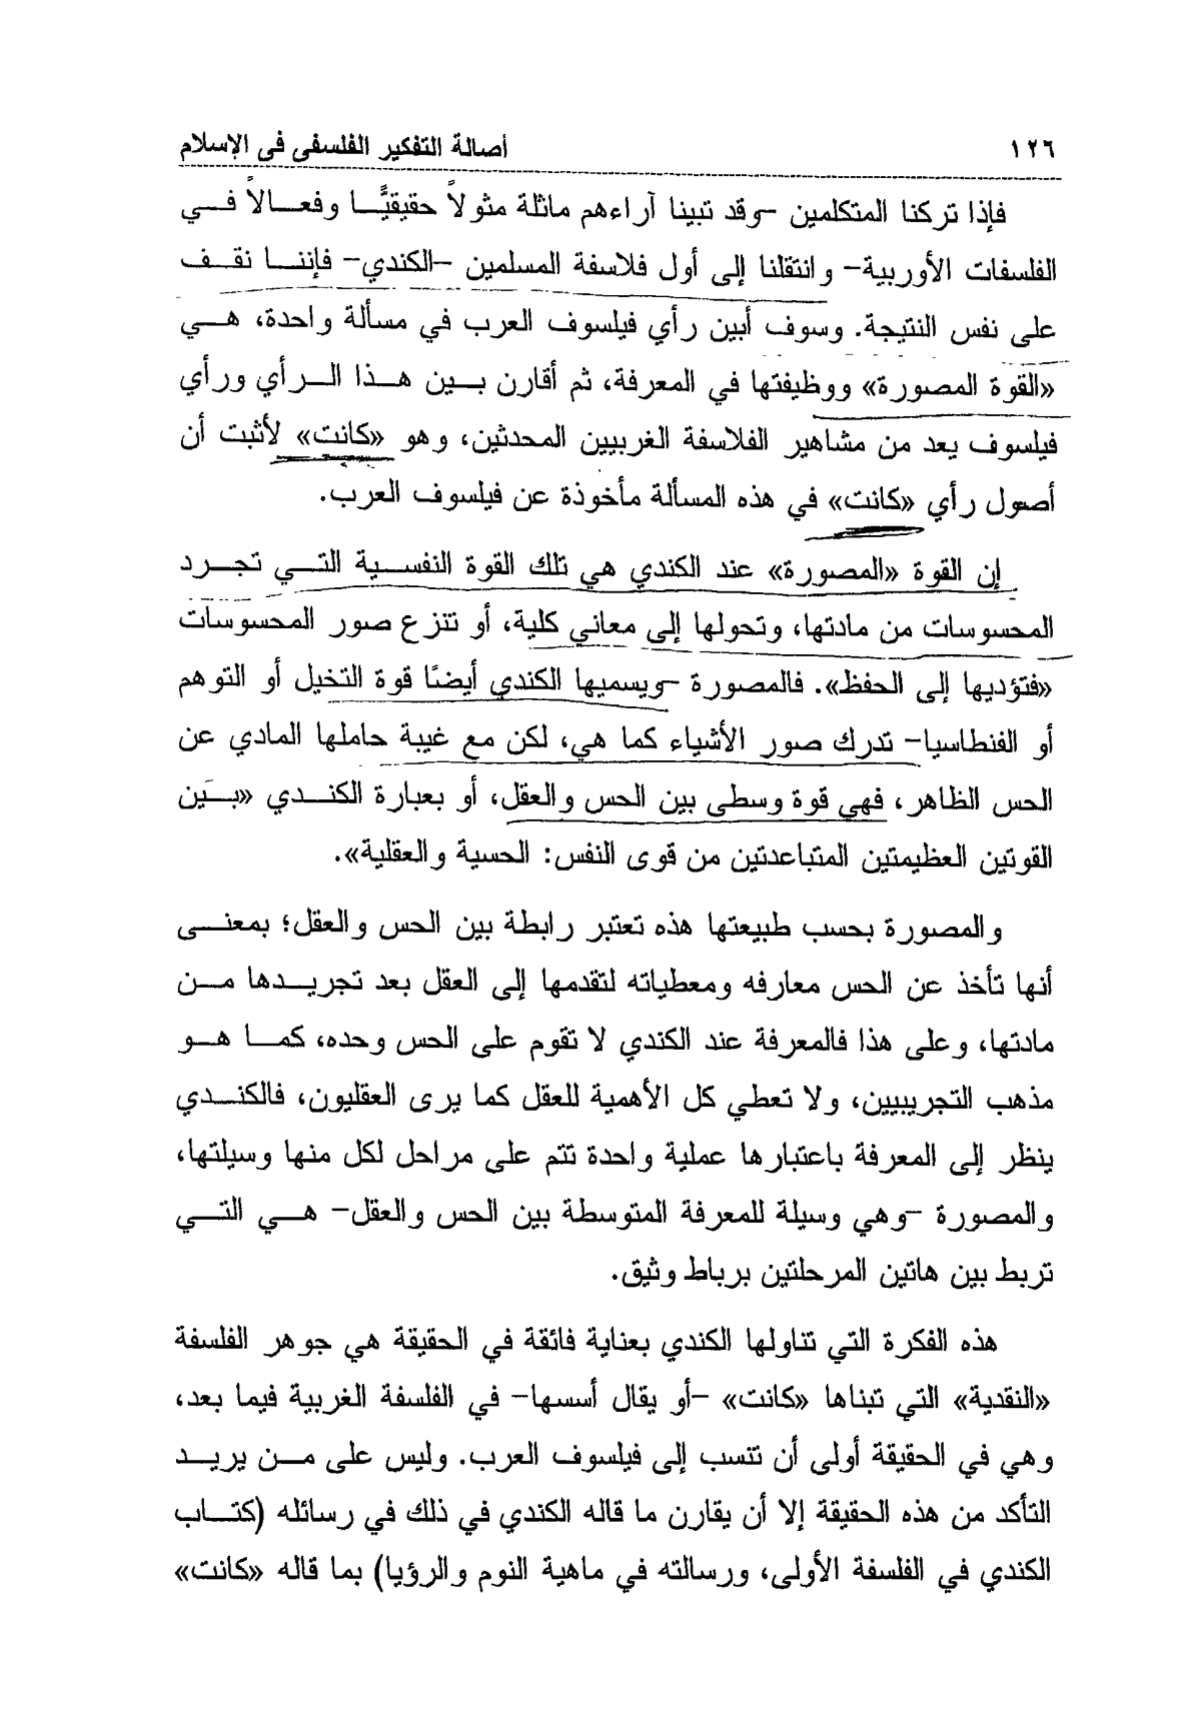 ١٢٦ أصالة التفكير الفلسفى فى الإسلام
فإذا تركنا المتكلمين –وقد تبينا آراءهم ماثلة مثولاً حقيقيًّا وفعالاً في
الفلسفات الأوربية– وانتقلنا إلى أول فلاسفة المسلمين –الكندي– فإننا نقف
على نفس النتيجة. وسوف أبين رأي فيلسوف العرب في مسألة واحدة، هي
«القوة المصورة» ووظيفتها في المعرفة، ثم أقارن بين هذا الرأي ورأي
فيلسوف يعد من مشاهير الفلاسفة الغربيين المحدثين، وهو «كانت» لأثبت أن
أصول رأي «كانت» في هذه المسألة مأخوذة عن فيلسوف العرب.
إن القوة «المصورة» عند الكندي هي تلك القوة النفسية التي تجرد
المحسوسات من مادتها، وتحولها إلى معاني كلية، أو تنزع صور المحسوسات
«فتؤديها إلى الحفظ». فالمصورة –ويسميها الكندي أيضًا قوة التخيل أو التوهم
أو الفنطاسيا– تدرك صور الأشياء كما هي، لكن مع غيبة حاملها المادي عن
الحس الظاهر، فهي قوة وسطى بين الحس والعقل، أو بعبارة الكندي «بين
القوتين العظيمتين المتباعدتين من قوى النفس: الحسية والعقلية».
والمصورة بحسب طبيعتها هذه تعتبر رابطة بين الحس والعقل؛ بمعنى
أنها تأخذ عن الحس معارفه ومعطياته لتقدمها إلى العقل بعد تجريدها من
مادتها، وعلى هذا فالمعرفة عند الكندي لا تقوم على الحس وحده، كما هو
مذهب التجريبيين، ولا تعطي كل الأهمية للعقل كما يرى العقليون، فالكندي
ينظر إلى المعرفة باعتبارها عملية واحدة تتم على مراحل لكل منها وسيلتها،
والمصورة –وهي وسيلة للمعرفة المتوسطة بين الحس والعقل– هي التي
تربط بين هاتين المرحلتين برباط وثيق.
هذه الفكرة التي تناولها الكندي بعناية فائقة في الحقيقة هي جوهر الفلسفة
«النقدية» التي تبناها «كانت» –أو يقال أسسها– في الفلسفة الغربية فيما بعد،
وهي في الحقيقة أولى أن تنسب إلى فيلسوف العرب. وليس على من يريد
التأكد من هذه الحقيقة إلا أن يقارن ما قاله الكندي في ذلك في رسائله (كتاب
الكندي في الفلسفة الأولى، ورسالته في ماهية النوم والرؤيا) بما قاله «كانت»